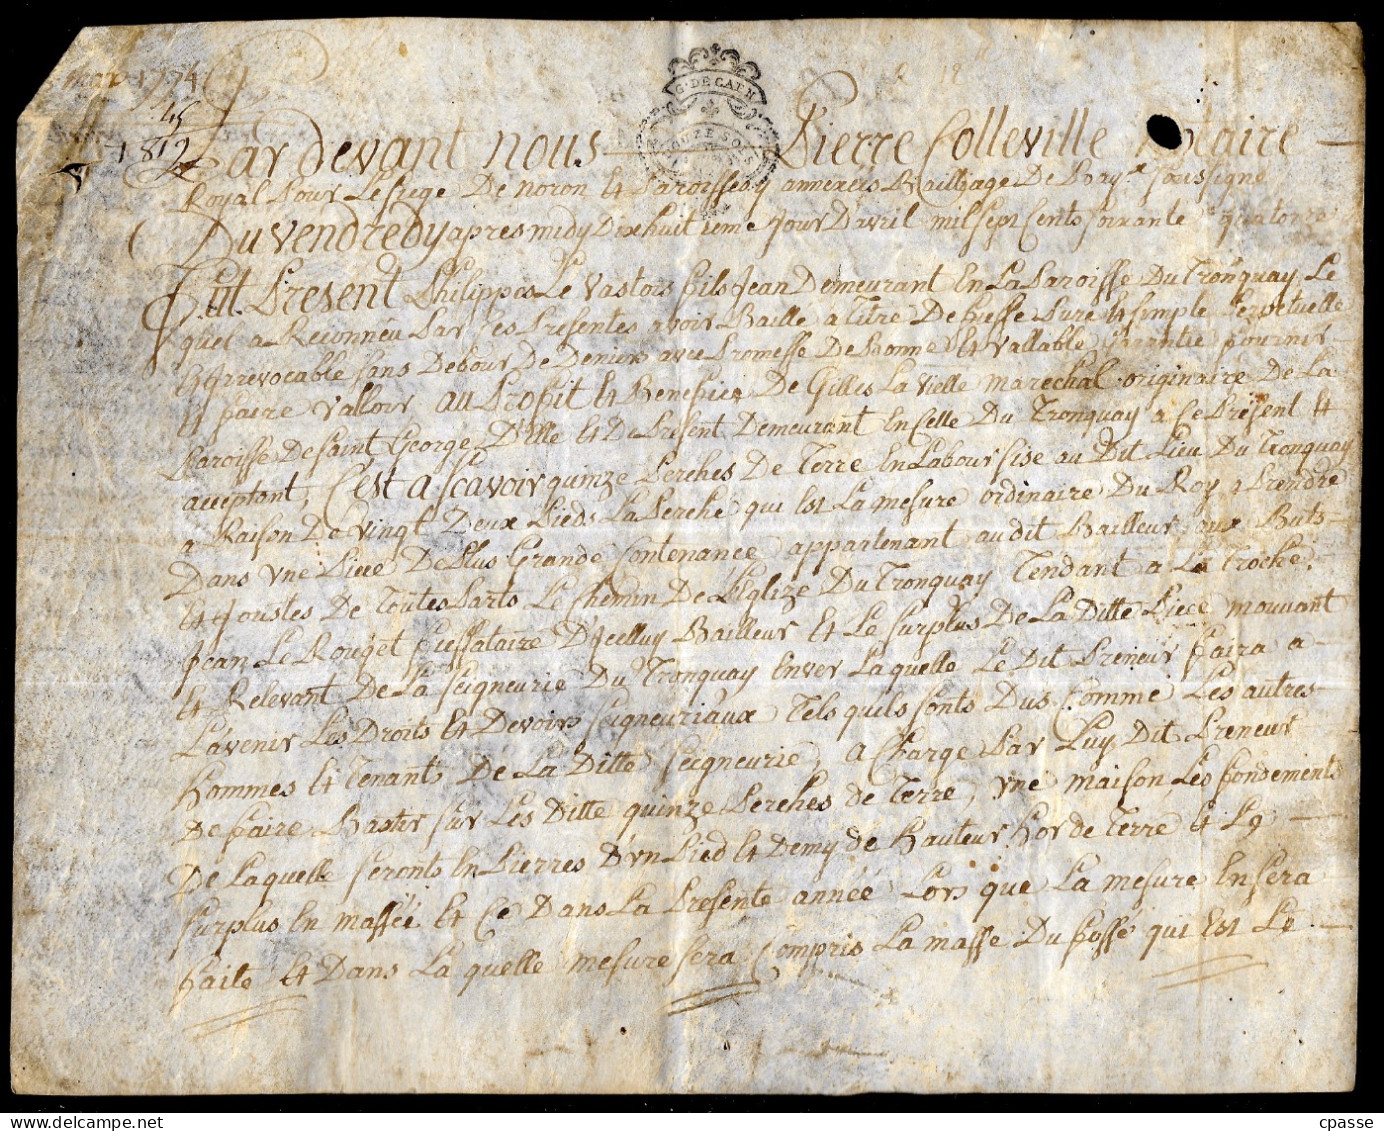 1774
45
1812
G. DE CAEN
ONZE SOLS
Par devant nous Pierre Colleville Notaire
Royal Pour Le siege De noron Et Paroisses y annexers Bailliage De Bay.x soussigné
Du vendredy apres midy Dixhuit ieme Jour Davril mil sept Cents soixante quatorze
Fut Present Philippes Le Vastois fils Jean Demeurant En La Paroisse Du Tronquay Le
quel a Reconnëu Par Ces Presentes avoir Baillé a titre De fieffe Pure Et simple Perpetuelle
Et Irrevocable sans Debour De Deniers avec Promesse De Bonne Et vallable Garantie fournir
Et faire valloir au Profit Et Benefice De Gilles La vielle marechal originaire De La
Paroisse De Saint George D'elle Et De Present Demeurant En Celle Du Tronquay a Ce Present Et
acceptant, C'est a scavoir quinze Perches De Terre En Labour sise au Dit Lieu Du Tronquay
a Raison De vingt Deux Pieds La Perche qui Est La mesure ordinaire Du Roy a Prendre
Dans vne Piece De Plus Grande Contenance appartenant audit Bailleur aux Buts
Et Joustes De Toutes Parts Le Chemin De L'Eglize Du Tronquay Tendant a La Troche,
Jean Le Rouget fieffataire D'Icelluy Bailleur Et Le surplus De La Ditte Piece mouvant
Et Relevant De La seigneurie Du Tronquay Enver Laquelle Le Dit Preneur faira a
L'avenir Les Droits Et Devoirs seigneuriaux Tels quils sonts Dus Comme Les autres
Hommes Et Tenants De La Ditte seigneurie, a Charge Par Luy Dit Preneur
De faire Bastir sur Les Ditte quinze Perches de Terre, vne maison, Les fondements
De Laquelle seronts En Pierres D'vn Pied Et Demy de Hauteur Hor de Terre Et Le
surplus En massée Et Ce Dans La Presente année Lors que La mesure En sera
faite Et Dans La quelle mesure sera Compris La masse Du fossé qui Est Le
cpasse